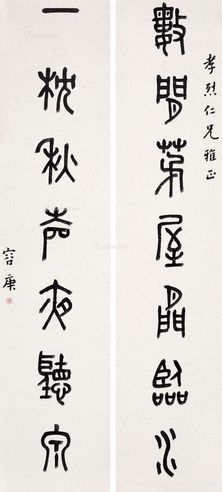 孝烈仁兄雅正
數間茅屋閒臨水
一枕秋聲夜聽泉
容庚